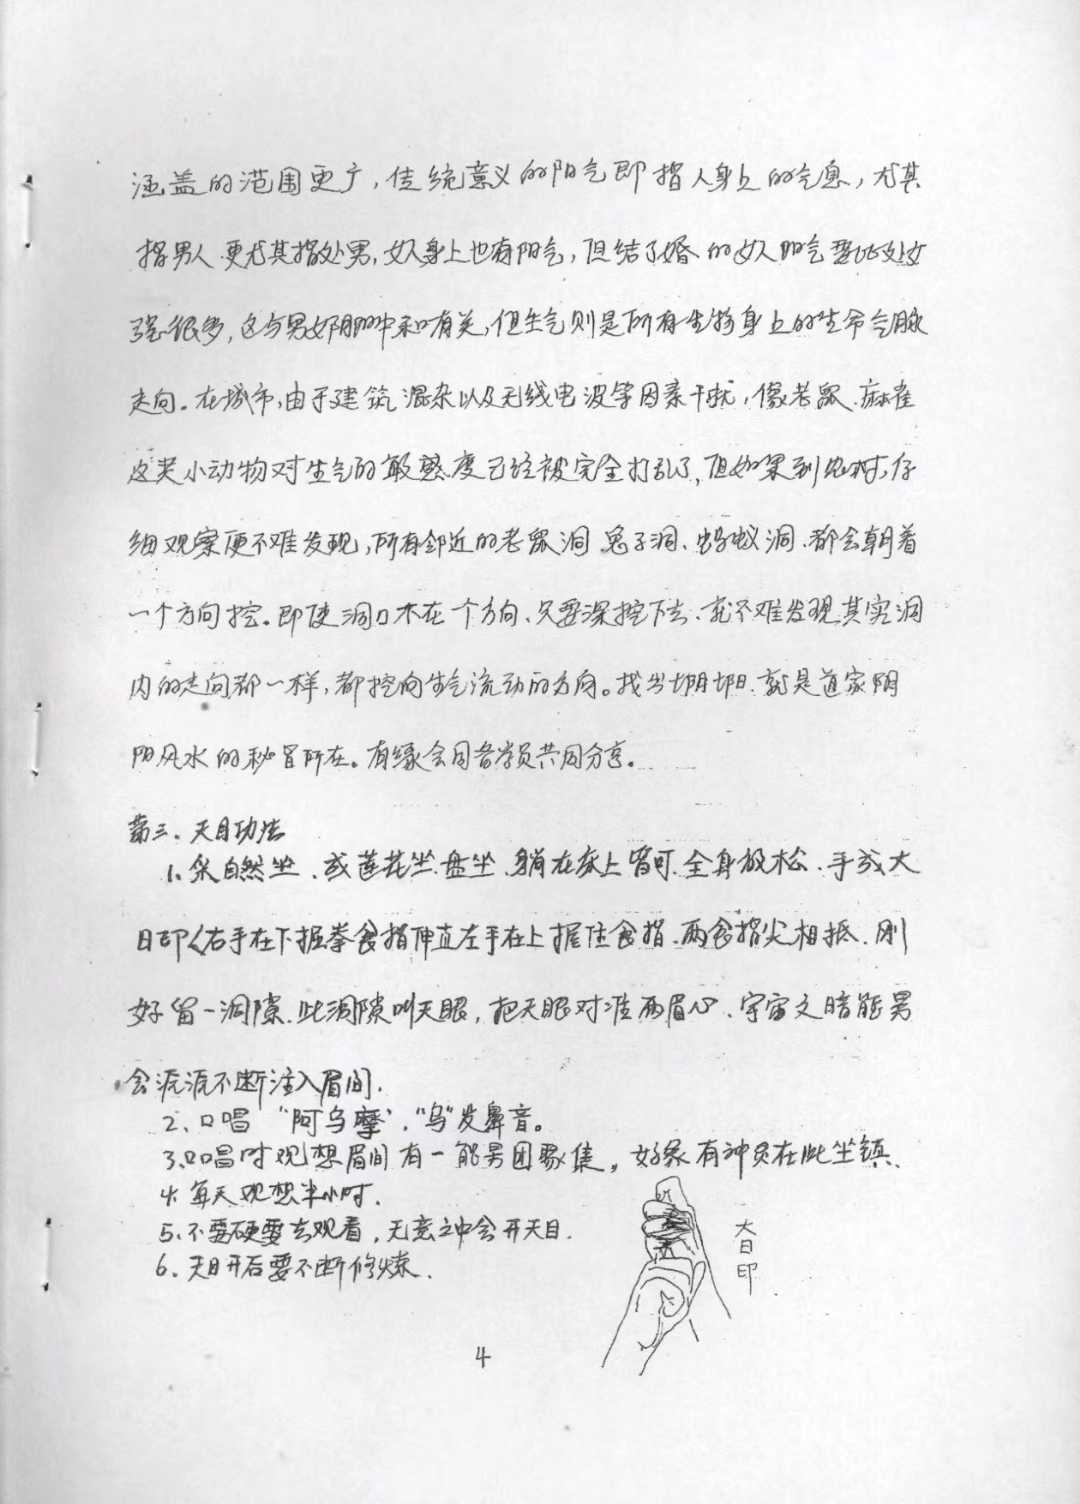 涵盖的范围更广，传统意义的阳气即指人身上的气息，尤其
指男人.更尤其指处男，女人身上也有阳气，但结了婚的女人阳气要比处女
强很多，这与男女阴阳中和有关，但生气则是所有生物身上的生命气脉
走向。在城市，由于建筑混杂以及无线电波等因素干扰，像老鼠.麻雀
这类小动物对生气的敏感度已经被完全打乱了，但如果到农村，仔
细观察便不难发现，所有邻近的老鼠洞 兔子洞、蚂蚁洞.都会朝着
一个方向挖。即使洞口不在一个方向、只要深挖下去、就不难发现其实洞
内的走向都一样，都挖向生气流动的方向。找出阴阳.就是道家阴
阳风水的秘旨所在。有缘会同各学员共同分享。
第三．天目功法
1、采自然坐．或莲花坐.盘坐.躺在床上皆可.全身放松．手成大
日印〈右手在下握拳食指伸直左手在上握住食指.两食指尖相抵．刚
好留一洞隙.此洞隙叫天眼，把天眼对准两眉心．宇宙之暗能男
会源源不断注入眉间．
2、口唱 “阿乌摩”．“乌”发鼻音。
3、口唱时观想眉间有一能男团聚集，好象有神灵在此坐镇．
4、每天观想半小时．
5、不要硬要去观看，无意之中会开天目．
6、天目开后要不断修炼．
大日印
4